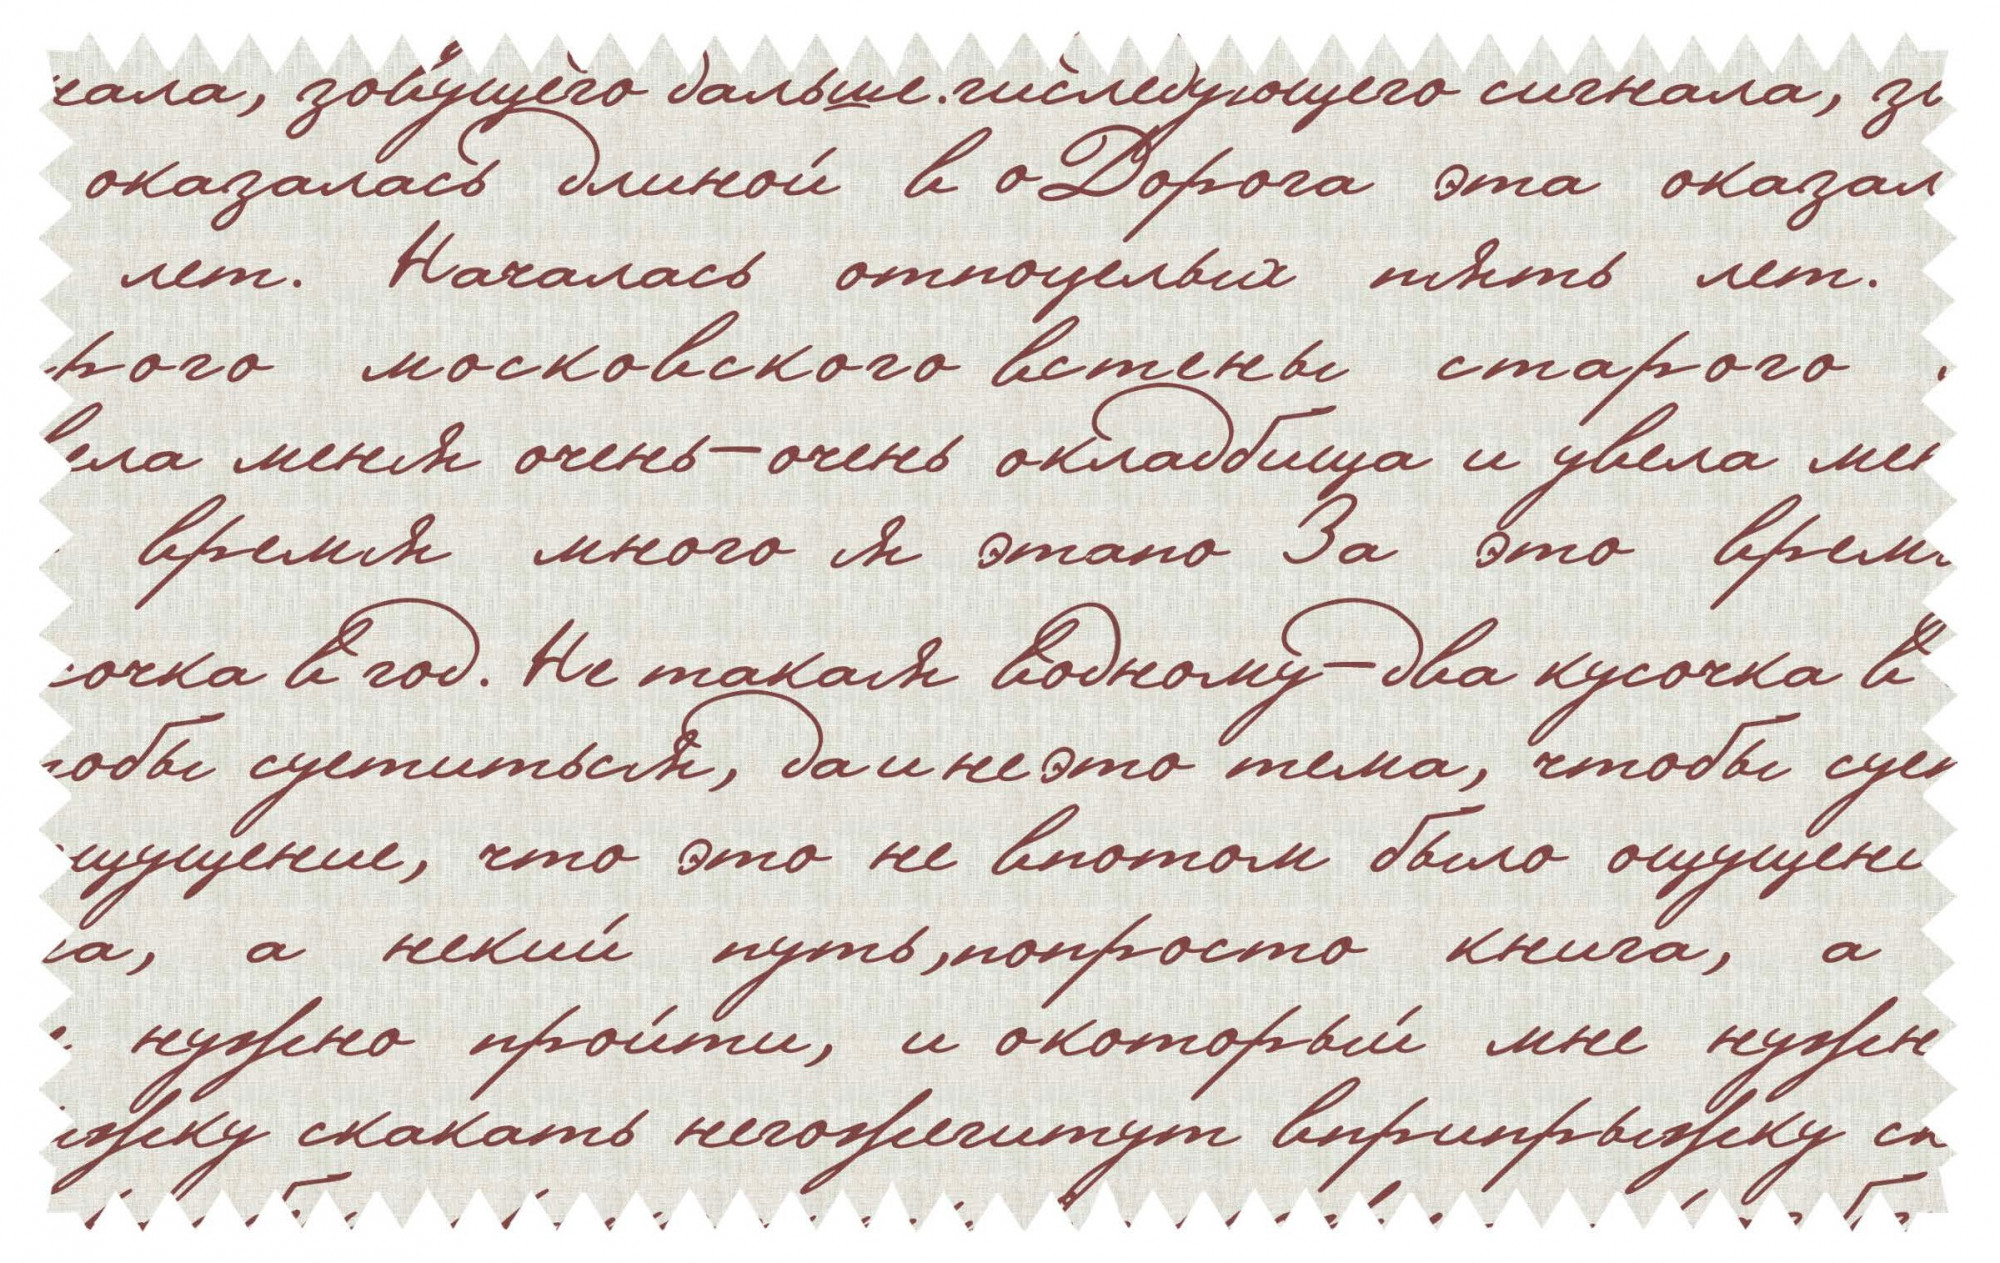 нала, зовущего дальше. следующего сигнала, зо
оказалась длиной в о Дорога эта оказал
лет. Началась от поцелых пять лет.
рого московского встены старого
вела меня очень-очень окладбища и увела мен
время много я этапо За это время
сочка в год. Не такая водному-два кусочка в
тобы суетиться, да и не это тема, чтобы сует
щущение, что это не впотом было ощущени
га, а некий путь, попросто книга, а
нужно пройти, и окоторый мне нужн
ыжку скакать негожегитут вприпрыжку ск